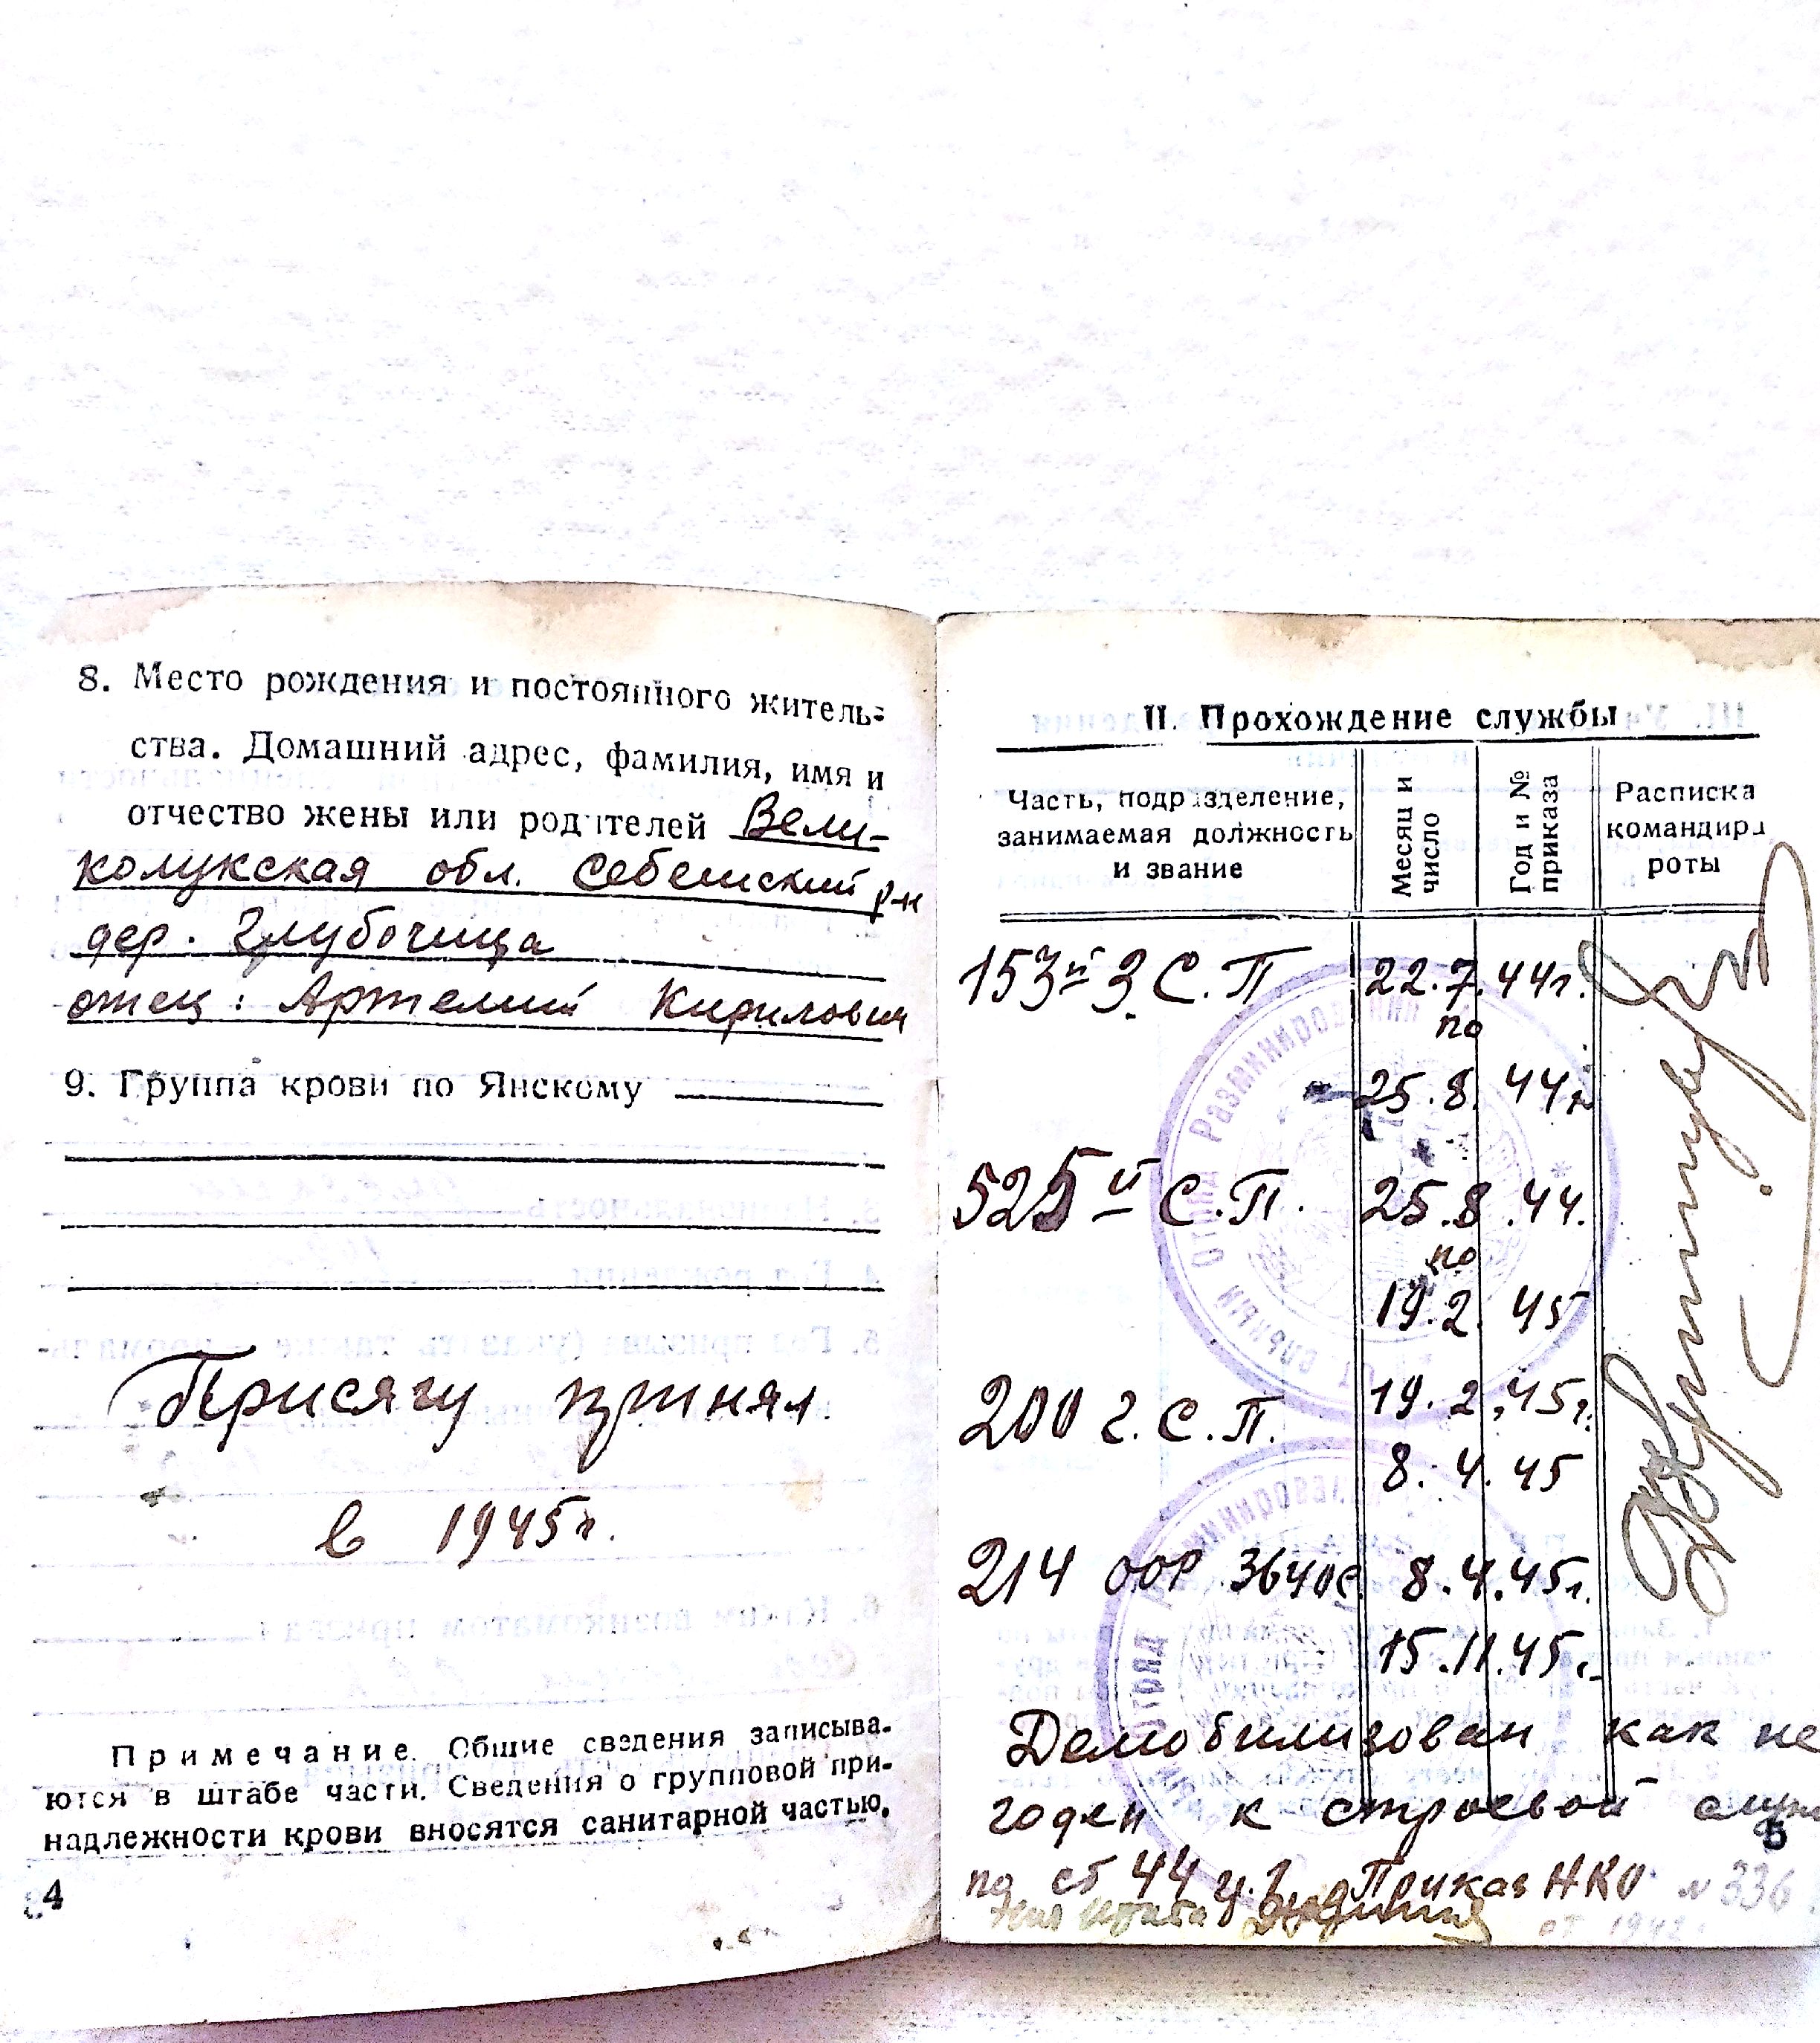 8. Место рождения и постоянного житель-
ства. Домашний адрес, фамилия, имя и
отчество жены или родителей Вели-
колукская обл. Себежский р-н
дер. Глубочица
отец: Артемий Кирилович
9. Группа крови по Янскому
Присягу принял
в 1945г.
Примечание. Общие сведения записыва-
ются в штабе части. Сведения о групповой при-
надлежности крови вносятся санитарной частью.
4
II. Прохождение службы
Часть, подразделение, занимаемая должность и звание
Месяц и число
Год и № приказа
Расписка командира роты
153й З.С.П 22.7.44г.
по
25.8.44г
525й С.П. 25.8.44.
по
19.2.45
200 г.С.П. 19.2.45г.
8.4.45
214 ООР 8.4.45г.
15.11.45г.
Демобилизован как не
годен к строевой служ
по ст 44 Приказ НКО № 336
от 1942г
5